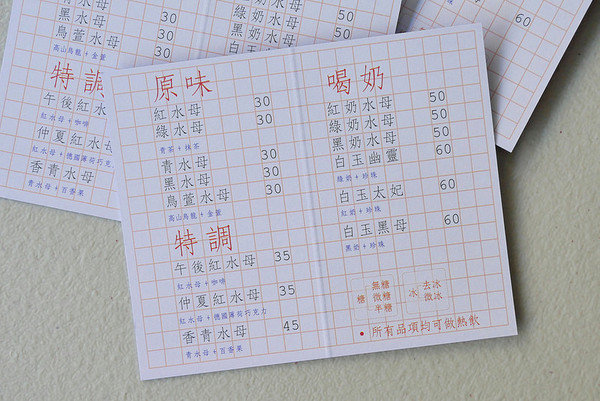 黑水母 30
烏龍水母 30
高山烏龍+金萱
特調
午後紅水母
紅水母+咖啡
仲夏紅水母
紅水母+德國薄荷巧克
香青水母
青水母+百香果
綠奶水母 50
黑奶水母 50
60
原味
紅水母 30
綠水母 30
青茶+抹茶
青水母 30
黑水母 30
烏萱水母 30
高山烏龍+金萱
特調
午後紅水母 35
紅水母+咖啡
仲夏紅水母 35
紅水母+德國薄荷巧克力
香青水母 45
青水母+百香果
喝奶
紅奶水母 50
綠奶水母 50
黑奶水母 50
白玉幽靈 60
綠奶+珍珠
白玉太妃 60
紅奶+珍珠
白玉黑母 60
黑奶+珍珠
糖 無糖 微糖 半糖
冰 去冰 微冰
•所有品項均可做熱飲